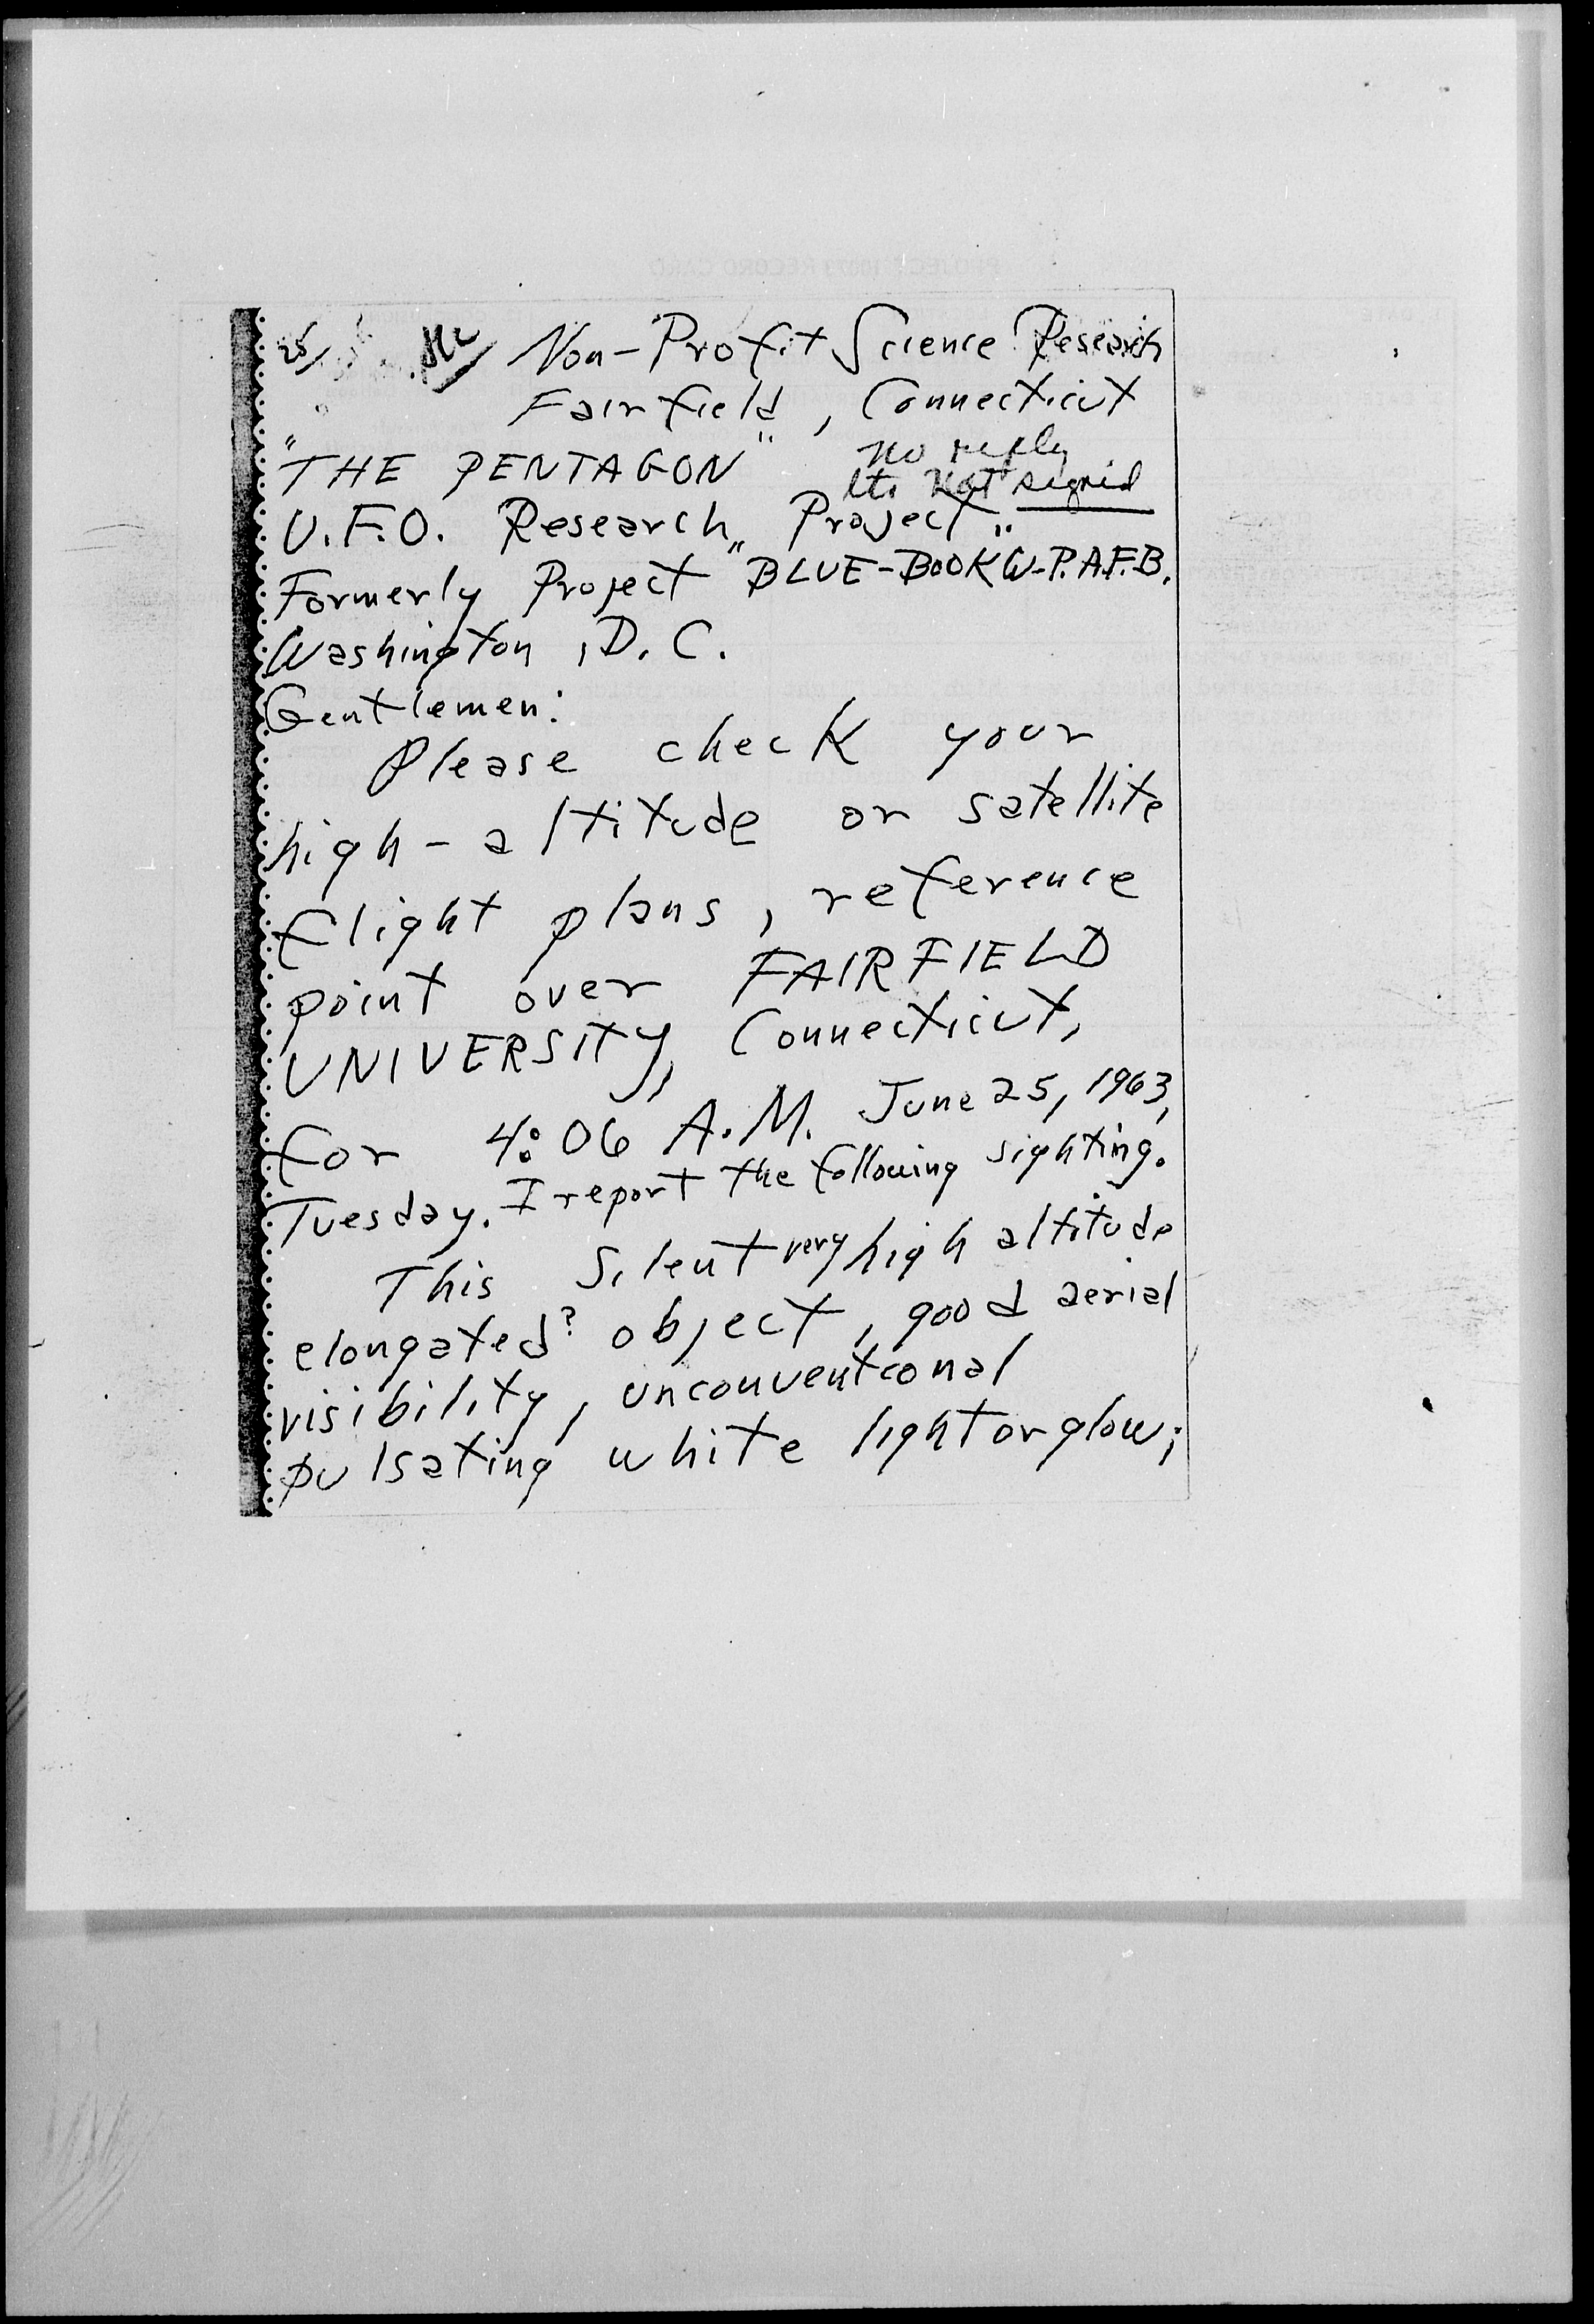 25/
Non-Profit Science Research
Fairfield, Connecticut
"THE PENTAGON"
no reply
ltr. Not signed
U.F.O. Research Project
Formerly Project "BLUE-BOOK" W-P.A.F.B.
Washington, D.C.
Gentlemen:
Please check your
high-altitude or satellite
flight plans, reference
point over FAIRFIELD
UNIVERSITY, Connecticut,
for 4:06 A.M. June 25, 1963,
Tuesday. I report the following sighting.
This Silent very high altitude
elongated? object, good aerial
visibility, unconventional
pulsating white light or glow;